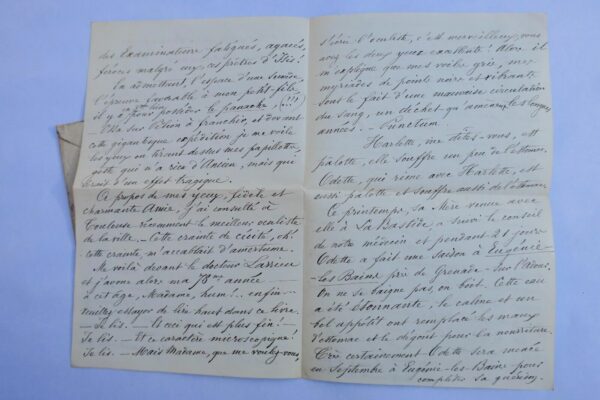 des Examinateurs fatigués, agacés,
forcés malgré eux, ces prêtres d'Isis!
En admettant l'espace d'une seconde
l'épreuve favorable à mon petit-fils,
il y a pour posséder le panache, (...!!!)
Ossa sur Pélion à franchir, et devant
cette gigantesque expédition je me voile
les yeux en tirant dessus mes papillotes,
geste qui n'a rien d'Ancien, mais qui
serait d'un effet tragique.
À propos de mes yeux, fidèle et
charmante Amie, j'ai consulté à
Toulouse récemment le meilleur oculiste
de la ville. — Cette crainte de cécité, oh!
cette crainte, m'accablait d'amertume.
Me voilà devant le docteur Larrieu
et j'avoue alors ma 78me année —
— à cet âge, Madame, hum!.. enfin
veuillez essayer de lire haut dans ce livre.
— Je lis. — Et ceci qui est plus fin? —
Je lis. — Et ce caractère microscopique?
Je lis. — Mais Madame, que me voulez-vous,
s'écrie l'oculiste, c'est merveilleux, vous
avez les deux yeux excellents! Alors il
m'explique que mes voiles gris, mes
myriades de points noirs et vibrants
sont le fait d'une mauvaise circulation
du sang, un déchet qu'amènent les longues
années. — Punctum.
Harlette, me dites-vous, est
palotte, elle souffre un peu de l'estomac.
Odette, qui rime avec Harlette, est
aussi palotte et souffre aussi de l'estomac.
Ce printemps, sa Mère venue avec
elle à La Bastide, a suivi le conseil
de notre médecin et pendant 21 jours
Odette a fait une saison à Eugénie-
les-Bains près de Grenade-sur-l'Adour.
On ne se baigne pas, on boit. Cette eau
a été étonnante, le calme et un
bel appétit ont remplacé les maux
d'estomac et le dégoût pour la nourriture.
Très certainement Odette sera menée
en Septembre à Eugénie-les-Bains pour
compléter sa guérison.